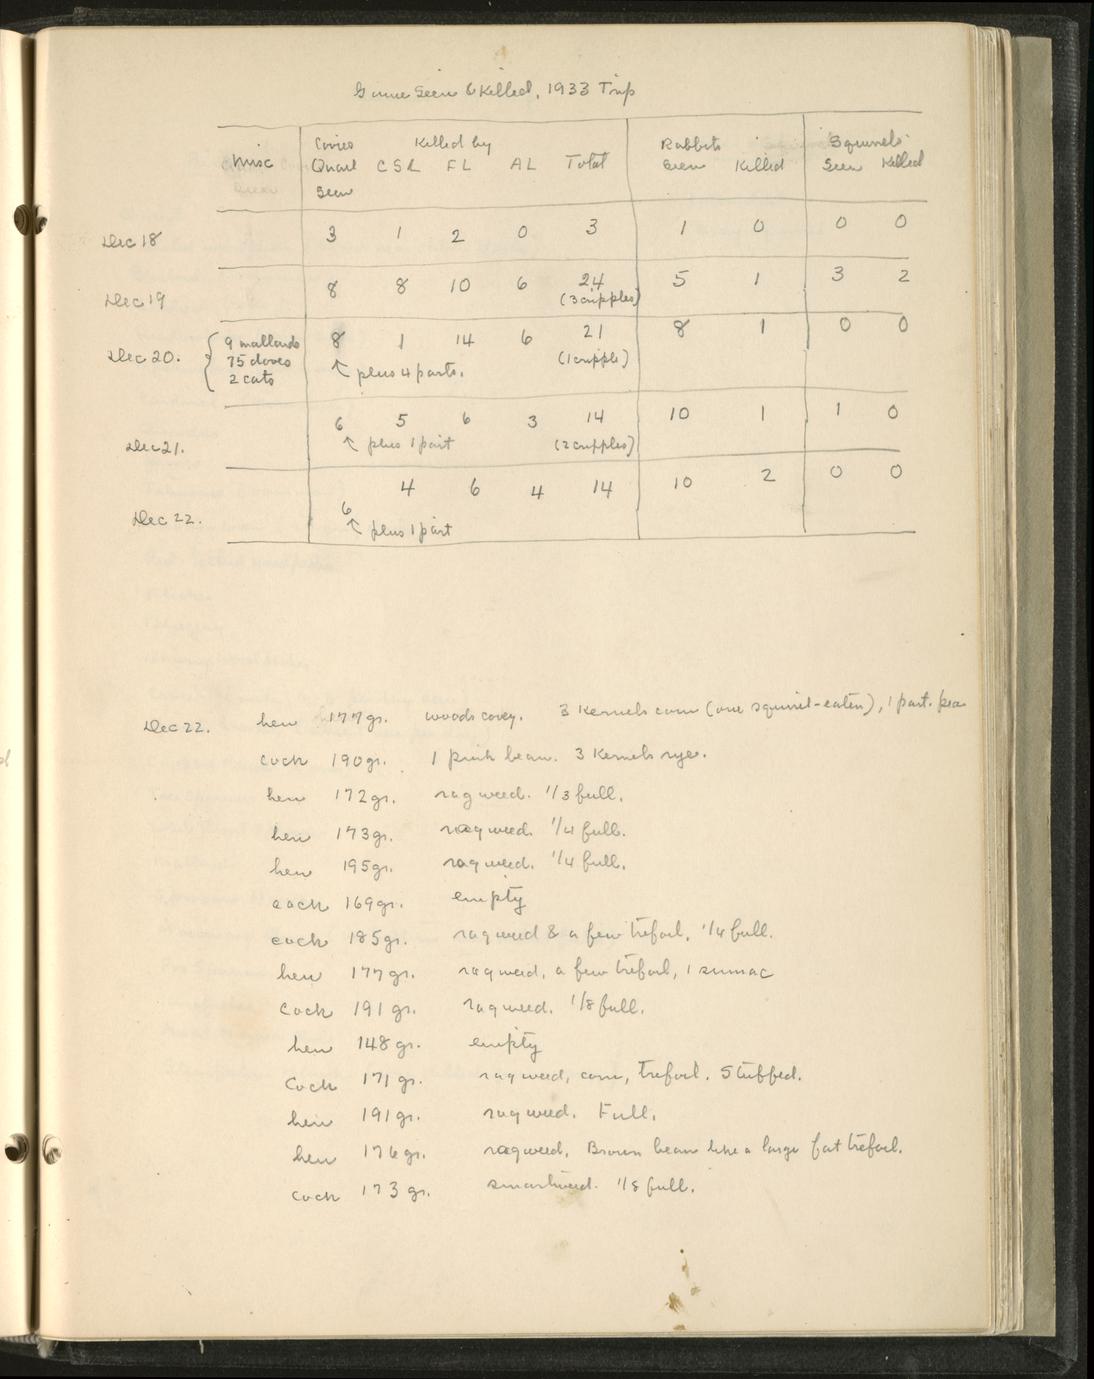 Game Seen & Killed, 1933 Trip
Misc Covies Quail Seen Killed by CSL FL AL Total Rabbits Seen Killed Squirrels Seen Killed
Dec 18 3 1 2 0 3 1 0 0 0
Dec 19 8 8 10 6 24 (3 cripples) 5 1 3 2
Dec 20. 9 mallards 75 doves 2 cats 8 1 14 6 21 (1 cripple) 8 1 0 0
↑ plus 4 parts.
Dec 21. 6 5 6 3 14 (2 cripples) 10 1 1 0
↑ plus 1 part
Dec 22. 6 4 6 4 14 10 2 0 0
↑ plus 1 part
Dec 22. hen 177 gr. woods covey. 3 kernels corn (one squirrel-eaten), 1 part. pea
cock 190 gr. 1 pink bean. 3 kernels rye.
hen 172 gr. ragweed. 1/3 full.
hen 173 gr. ragweed. 1/4 full.
hen 195 gr. ragweed. 1/4 full.
cock 169 gr. empty
cock 185 gr. ragweed & a few trefoil. 1/4 full.
hen 177 gr. ragweed, a few trefoil, 1 sumac
cock 191 gr. ragweed. 1/8 full.
hen 148 gr. empty
cock 171 gr. ragweed, corn, trefoil. Stuffed.
hen 191 gr. ragweed. Full.
hen 176 gr. ragweed. Brown bean like a large fat trefoil.
cock 173 gr. smartweed. 1/8 full.